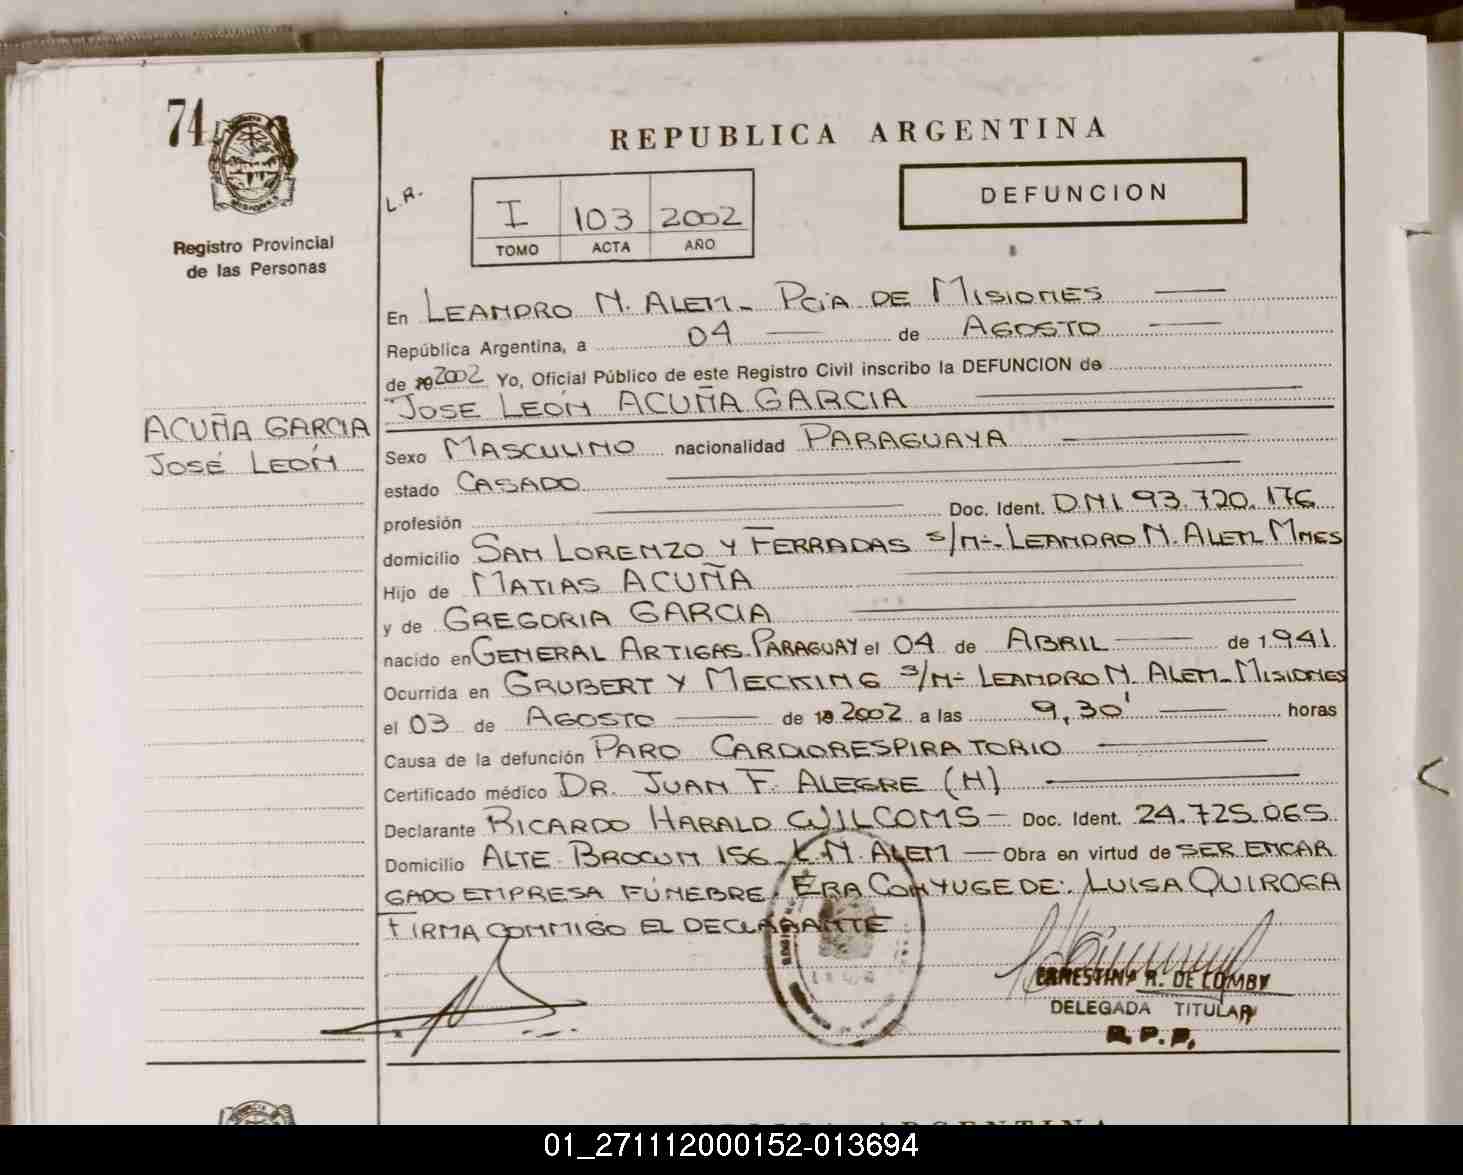 74
Registro Provincial
de las Personas
REPUBLICA ARGENTINA
L.R.
I 103 2002
TOMO ACTA AÑO
DEFUNCION
En LEANDRO N. ALEM - Pcia DE MISIONES
República Argentina, a 04 de AGOSTO
de 2002 Yo, Oficial Público de este Registro Civil inscribo la DEFUNCION de
JOSE LEÓN ACUÑA GARCIA
ACUÑA GARCIA
JOSÉ LEÓN
Sexo MASCULINO nacionalidad PARAGUAYA
estado CASADO
profesión Doc. Ident. D.N.I. 93.720.176
domicilio SAN LORENZO Y FERRADAS s/Nº- LEANDRO N. ALEM MNES
Hijo de MATIAS ACUÑA
y de GREGORIA GARCIA
nacido en GENERAL ARTIGAS PARAGUAY el 04 de ABRIL de 1.941.
Ocurrida en GRUBERT Y MECKING s/Nº- LEANDRO N. ALEM - MISIONES
el 03 de AGOSTO de 2002 a las 9,30' horas
Causa de la defunción PARO CARDIORESPIRATORIO
Certificado médico DR. JUAN F. ALEGRE (H)
Declarante RICARDO HARALD WILCOMS - Doc. Ident. 24.725.065
Domicilio ALTE. BROCUN 156 - L.N. ALEM - Obra en virtud de SER ENCAR
GADO EMPRESA FÚNEBRE. ERA CONYUGE DE: LUISA QUIROGA
FIRMA CONMIGO EL DECLARANTE
ERNESTINA R. DE LOMBY
DELEGADA TITULAR
R.P.P.
REPUBLICA ARGENTINA
01_271112000152-013694